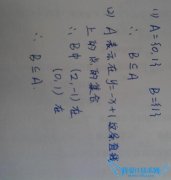 (1) A={0,1} B={1}
∴ B⊆A
(2) A表示在y=-x+1这条直线
上的点的集合
∴ B中(2,-1)在
(0,1)在
∴ B⊆A.